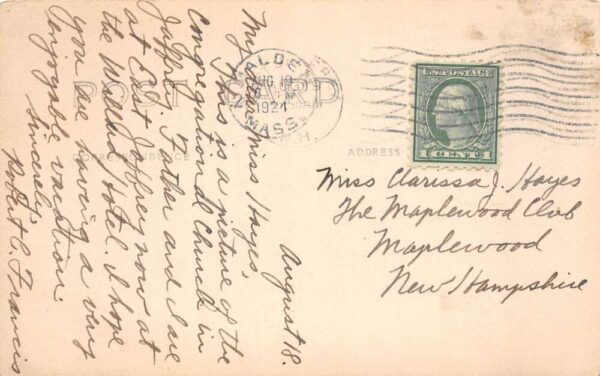 August 18.
My dear Miss Hayes,
This is a picture of the
Congregational Church in
Jaffrey. Father and I are
at East Jaffrey now at
the Hotel. I hope
you are having a very
enjoyable vacation.
Sincerely,
Robert C. Francis
POST CARD
CORRESPONDENCE
ADDRESS
MALDEN
AUG 19
1924
MASS.
U.S. POSTAGE
1 CENT 1
Miss Clarissa J. Hayes
The Maplewood Club
Maplewood
New Hampshire